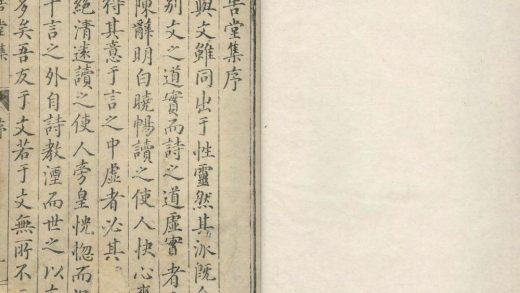 堂集序
與文雖同出于性靈然其派既
別文之道實而詩之道虛實者
陳辭明白曉暢讀之使人快心爽
得其意于言之中虛者必其
絕清遠讀之使人旁皇恍惚而
言之外自詩教湮而世之以
矣吾友于文若于文無所不
堂集
序